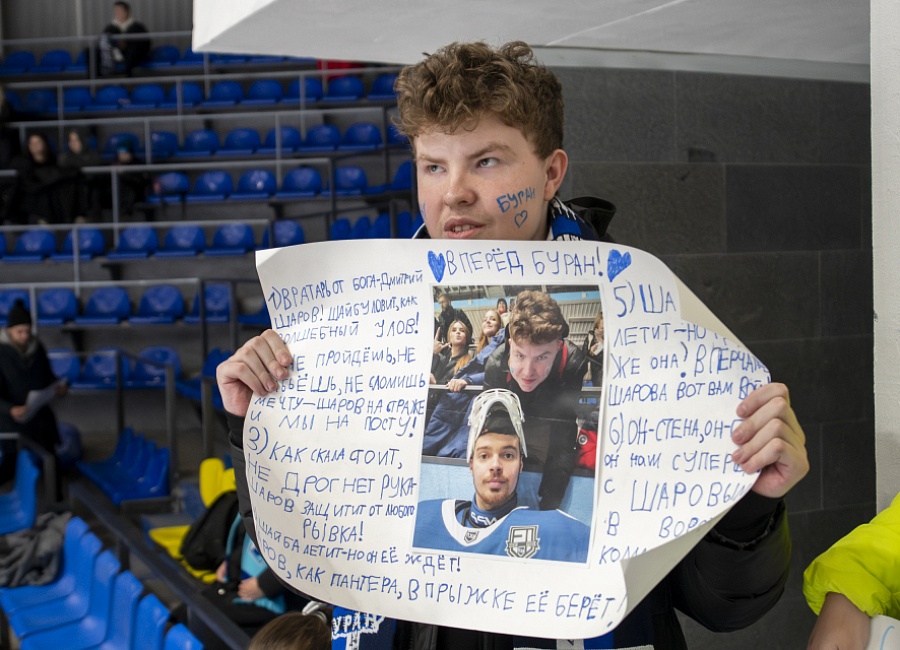 БУРАН
ВПЕРЁД БУРАН!
1) ВРАТАРЬ ОТ БОГА-ДМИТРИЙ
ШАРОВ! ШАЙБУ ЛОВИТ, КАК
УЛОВ!
НЕ ПРОЙДЁШЬ, НЕ
НЕ СЛОМИШЬ
МЕЧТУ-ШАРОВ НА СТРАЖЕ
И МЫ НА ПОСТУ!
3) КАК СКАЛА СТОИТ,
НЕ ДРОГНЕТ РУКА-
ШАРОВ ЗАЩИТИТ ОТ ЛЮБОГО
РЫВКА!
ШАЙБА ЛЕТИТ-НО ОН ЕЁ ЖДЁТ!
КАК ПАНТЕРА, В ПРЫЖКЕ ЕЁ БЕРЁТ!
5) ША
ЛЕТИТ-НО
ЖЕ ОНА? В ПЕРЧАТ
ШАРОВА ВОТ ВАМ
6) ОН-СТЕНА, ОН-
ОН НАМ СУПЕР
С ШАРОВЫМ
В ВОРО
УРАН